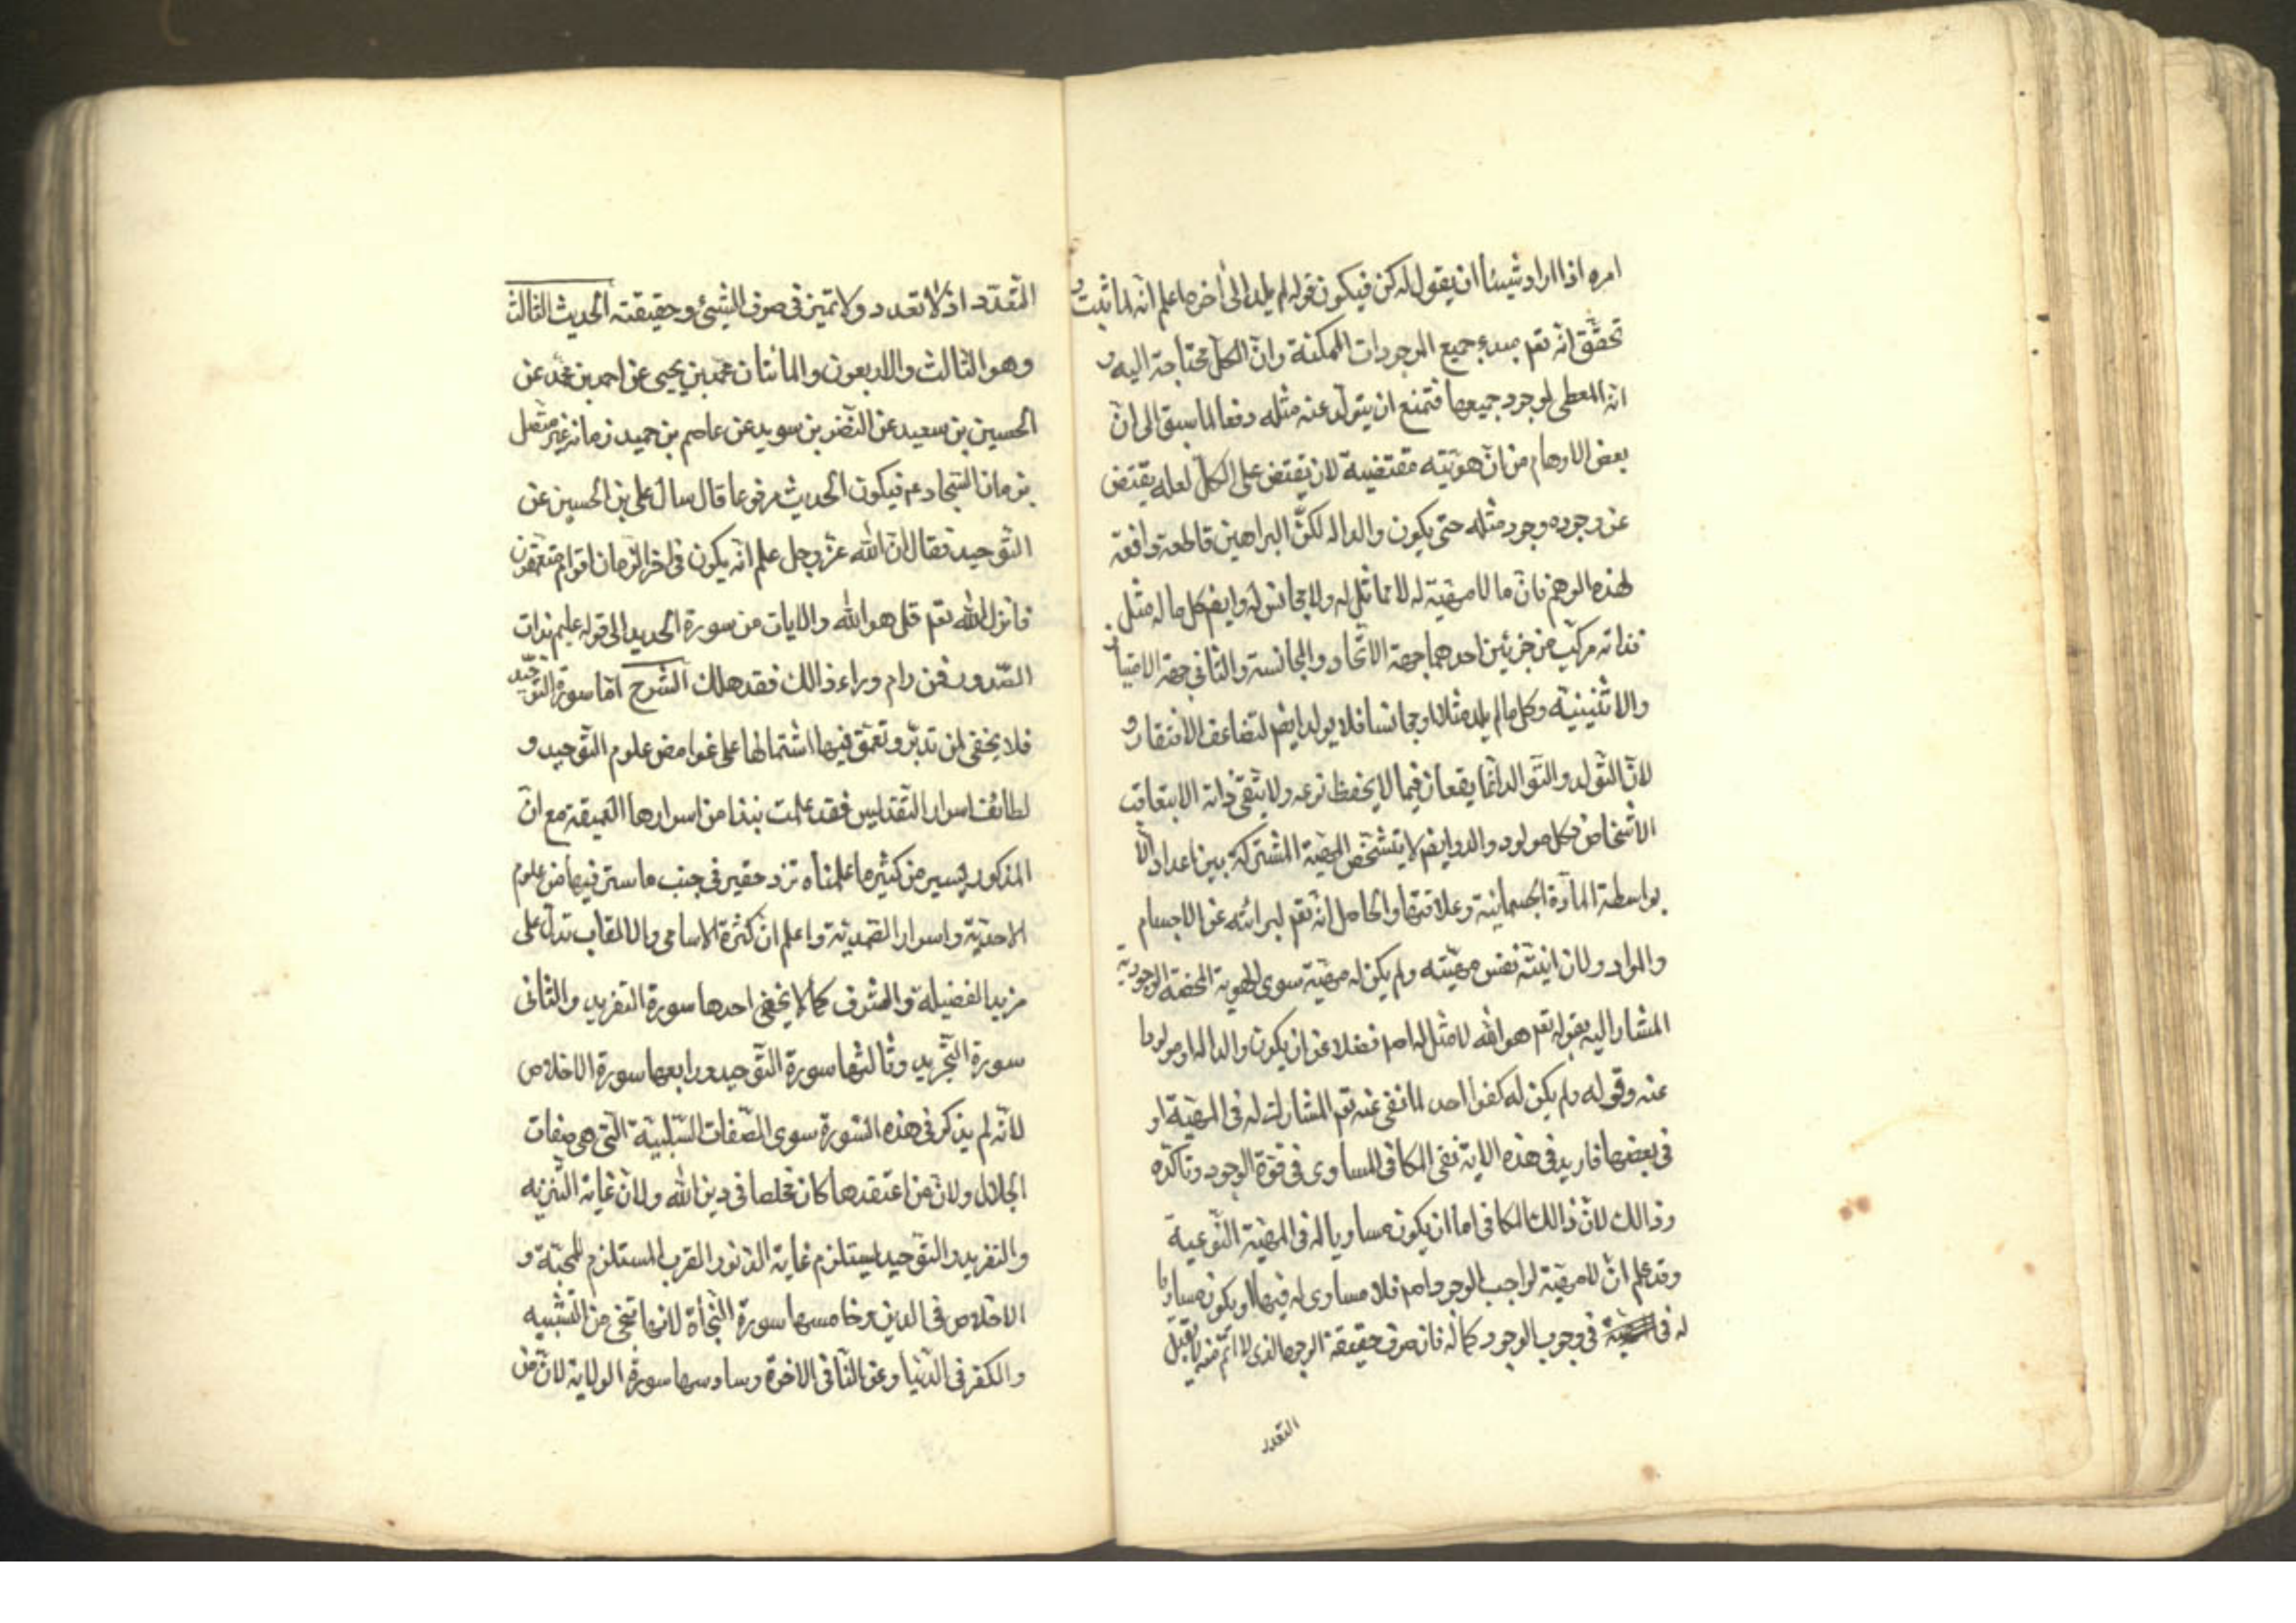 امره اذا اراد شيئا ان يقول له كن فيكون قوله لم يلد الى اخره اعلم انه لما ثبت و
تحقق انه تعم مبدء جميع الموجودات الممكنة وان الكل محتاجة اليه و
انه المعطى لوجود جميعها فتمنع ان يتولد عنه مثله دفعا لما سبق الى ان
بعض الاوهام من ان هويته مقتضية لان يقتض على الكل لعله يقتض
عن وجوده وجود مثله حتى يكون والدا له لكن البراهين قاطعة دافعة
لهذه الوهم فان ما لا مهية له لا مماثل له ولا مجانس له وايضم كل ما له مثل
فذاته مركب من جزئين احدهما جهة الاتحاد والمجانسة والثانى جهة الامتياز
والاثنينية وكل ما لم يلد مثلا او مجانسا فلا يولد ايضم لتضاعف الافتقار و
لان التولد والتوالد انما يقعان فيما لا يخفظ نوعه ولا يبقى ذاته الا بتعاقب
الاشخاص فكل مولود والد وايضم لا يتشخص المهية المشتركة بين اعداد الا
بواسطة المادة الجسمانية وعلاقتها والحاصل انه تعم لبرائته عن الاجسام
والمواد ولان انيته نفس مهيته ولم يكن له مهية سوى الهوية المحضة الوجودية
المشار اليه بقوله تعم هو الله لا مثل له اصم فضلا عن ان يكون والدا له او مولودا
عنه وقوله ولم يكن له كفوا احد لما نفى عنه تعم المشارك له فى المهية او
فى بعضها فاريد فى هذه الاية نفى المكافى المساوى فى قوة الوجود وتاكده
وذالك لان ذالك المكافى اما ان يكون مساويا له فى المهية النوعية
وقد علم ان لا مهية لواجب الوجود اصم فلا مساوى له فيها او يكون مساويا
له فى وجوب الوجود كما له فان صرف حقيقة الوجود الذى لا اتم منه لا يقبل
التعدد
التعدد اذ لا تعدد ولا تميز فى صرف الشيئ وحقيقته الحديث الثالث
وهو الثالث والاربعون والمائتان محمد بن يحيى عن احمد بن محمد عن
الحسين بن سعيد عن النضر بن سويد عن عاصم بن حميد زمانه غير متصل
بزمان السجادعم فيكون الحديث مرفوعا قال سال على بن الحسين عن
التوحيد فقال ان الله عز وجل علم انه يكون فى اخر الزمان اقوام متعمقون
فانزل الله تعم قل هو الله والايات من سورة الحديد الى قوله عليم بذات
الصدور فمن رام وراء ذالك فقد هلك الشرح اما سورة التوحيد
فلا يخفى لمن تدبر وتعمق فيها اشتمالها على غوامض علوم التوحيد و
لطائف اسرار التقديس فقد علمت نبذا من اسرارها العميقة مع ان
المذكور يسير من كثير ما علمناه نزر حقير فى جنب ما ستر فيها من علوم
الاحدية واسرار الصمدية واعلم ان كثرة الاسامى والالقاب تدل على
مزيد الفضيلة والشرف كما لا يخفى احدها سورة التفريد والثانى
سورة التجريد وثالثها سورة التوحيد ورابعها سورة الاخلاص
لانه لم يذكر فى هذه السورة سوى الصفات السلبية التى هى صفات
الجلال ولان من اعتقدها كان مخلصا فى دين الله ولان غاية التنزيه
والتفريد والتوحيد يستلزم غاية الدنو والقرب المستلزم للمحبة و
الاخلاص فى الدين وخامسها سورة النجاة لانها تنجى من التشبيه
والكفر فى الدنيا وعن النار فى الاخرة وسادسها سورة الولاية لان من